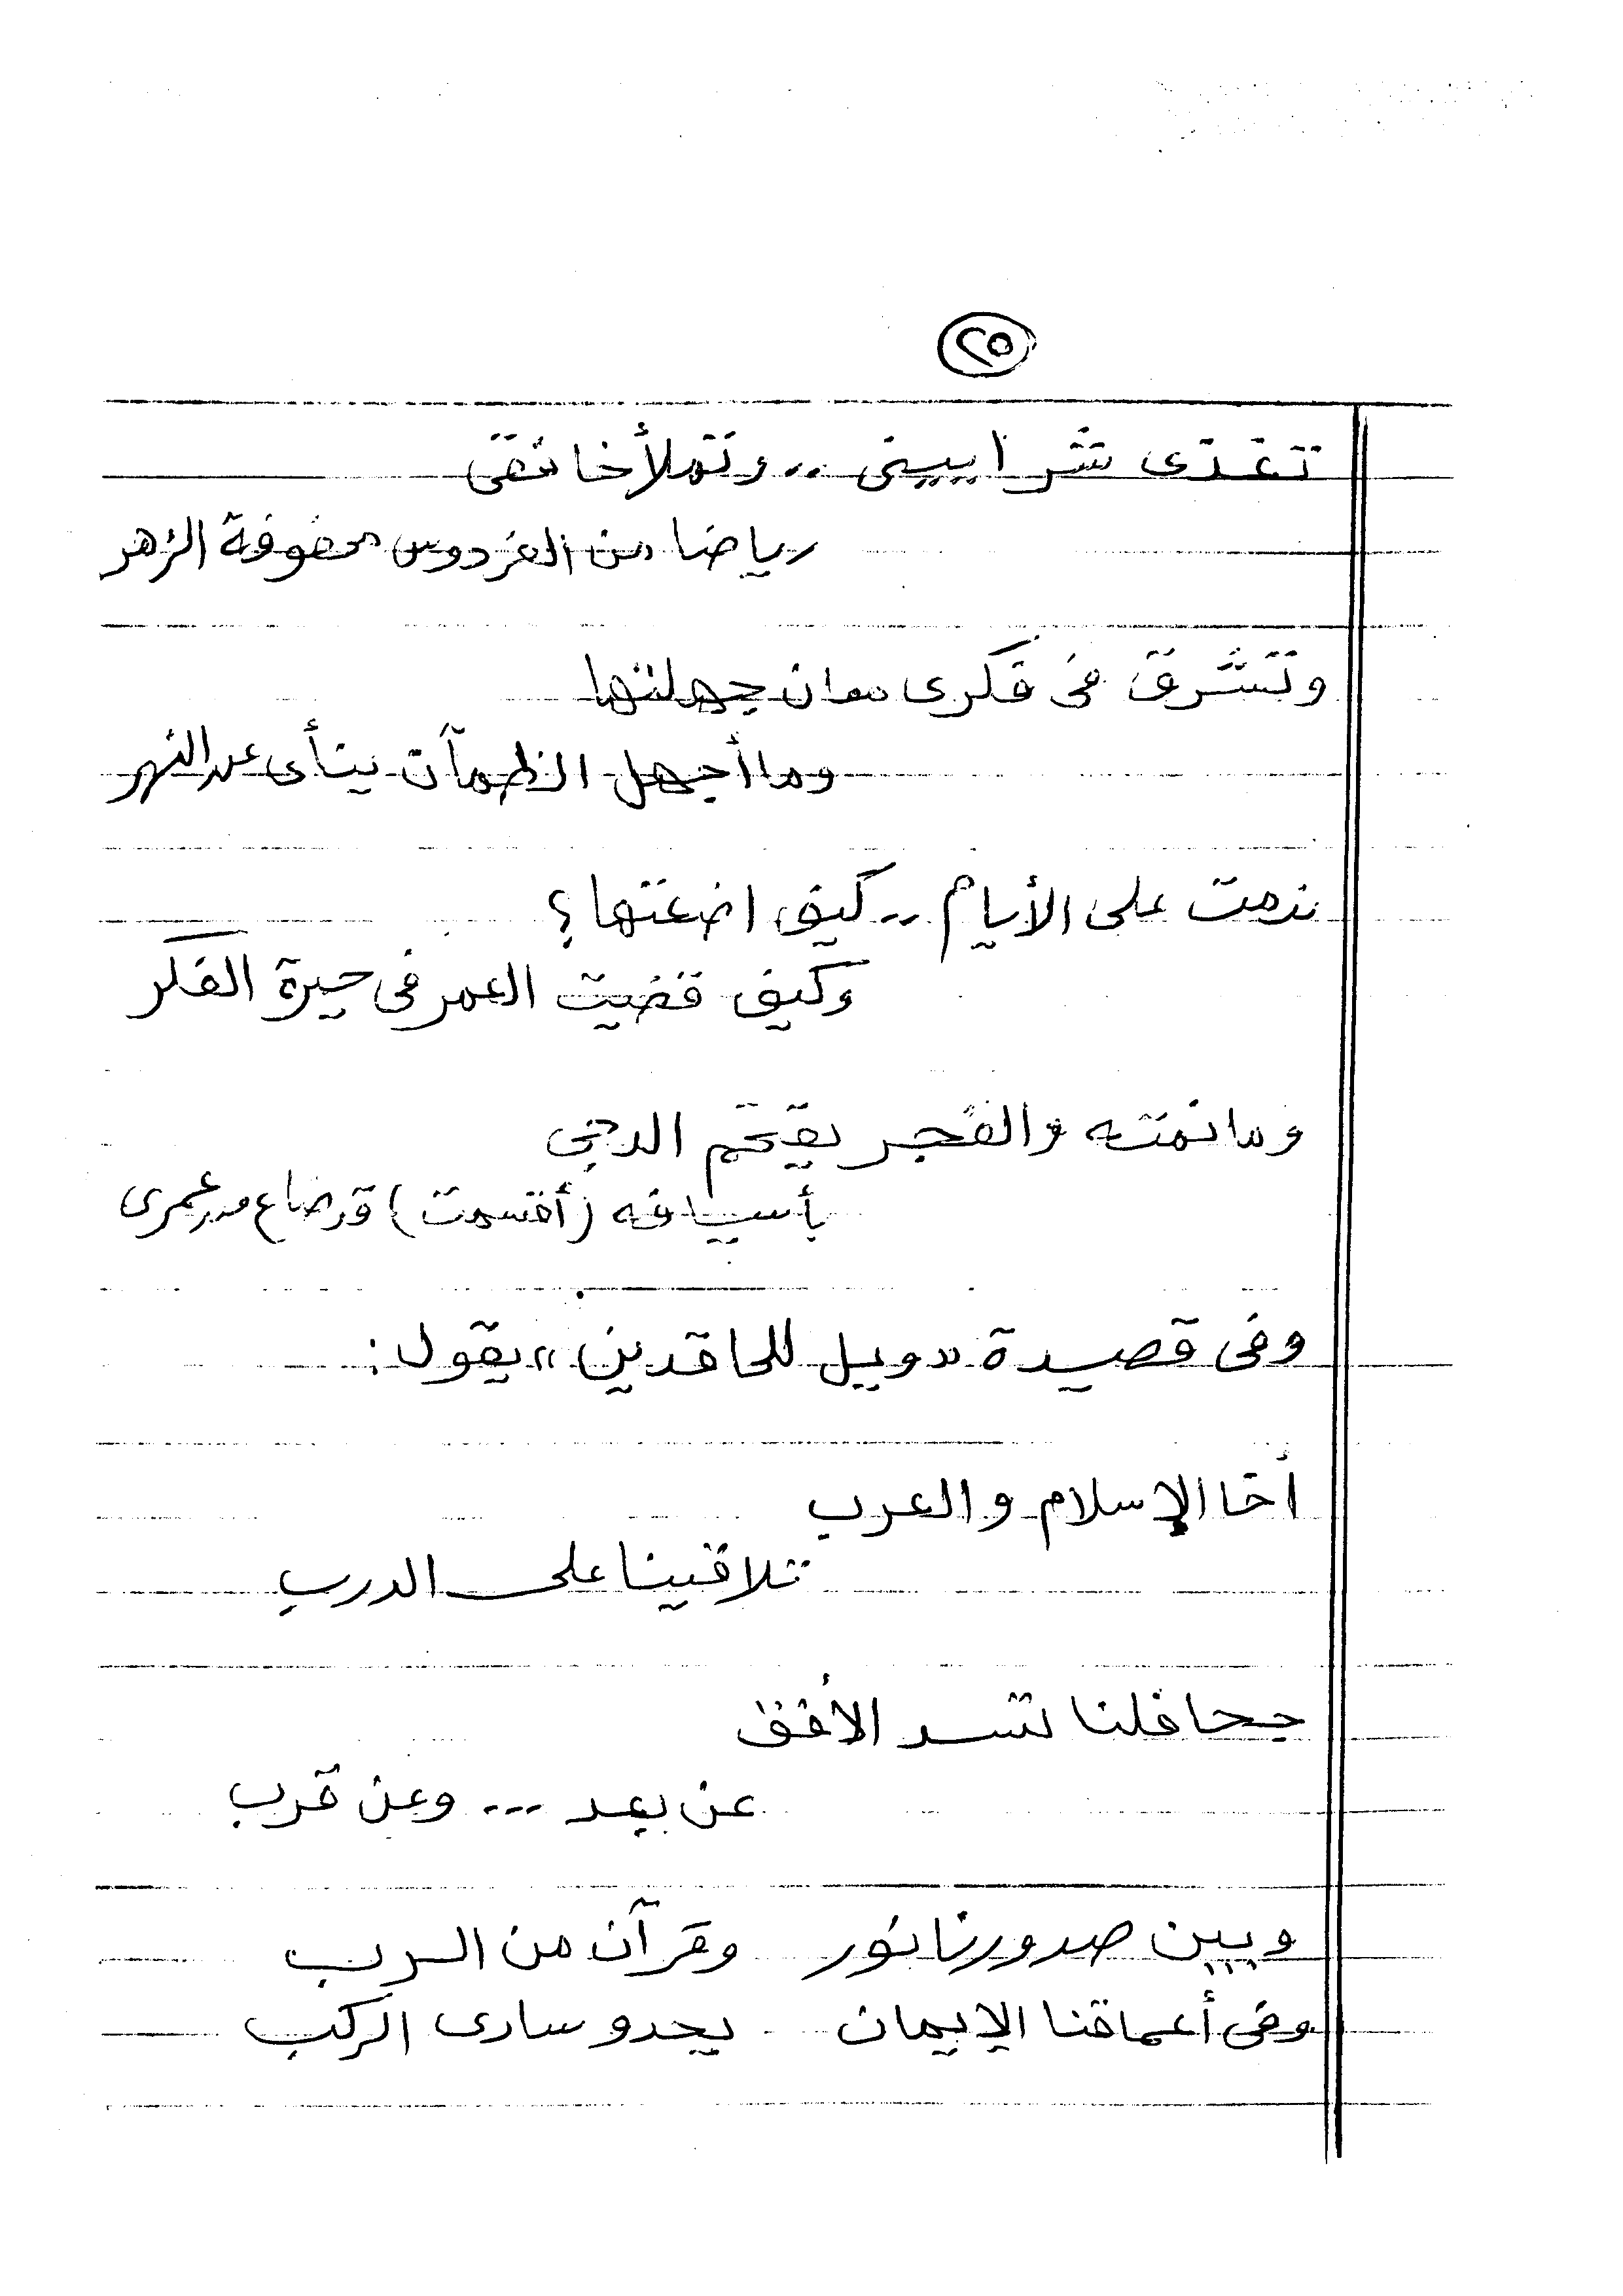 ٢٥
تغذى شرايينى .. وتملأ خافقى
رياضا من الفردوس محفوفة الزهر
وتشرق فى فكرى معان جهلتها
وما أجهل الظمآن ينأى عن النهر
ندمت على الأيام .. كيف اضعتها ؟
وكيف قضيت العمر فى حيرة الفكر
وما نمته والفجر يقتحم الدجى
بأسيافه (أقسمت) قد ضاع من عمرى
وفى قصيدة «ويل للحاقدين» يقول :
أخا الإسلام والعرب
تلاقينا على الدرب
جحافلنا تسد الأفق
عن بعد ... وعن قرب
وبين صدورنا نور وقرآن من الرب
وفى أعماقنا الإيمان يحدو سارى الركب